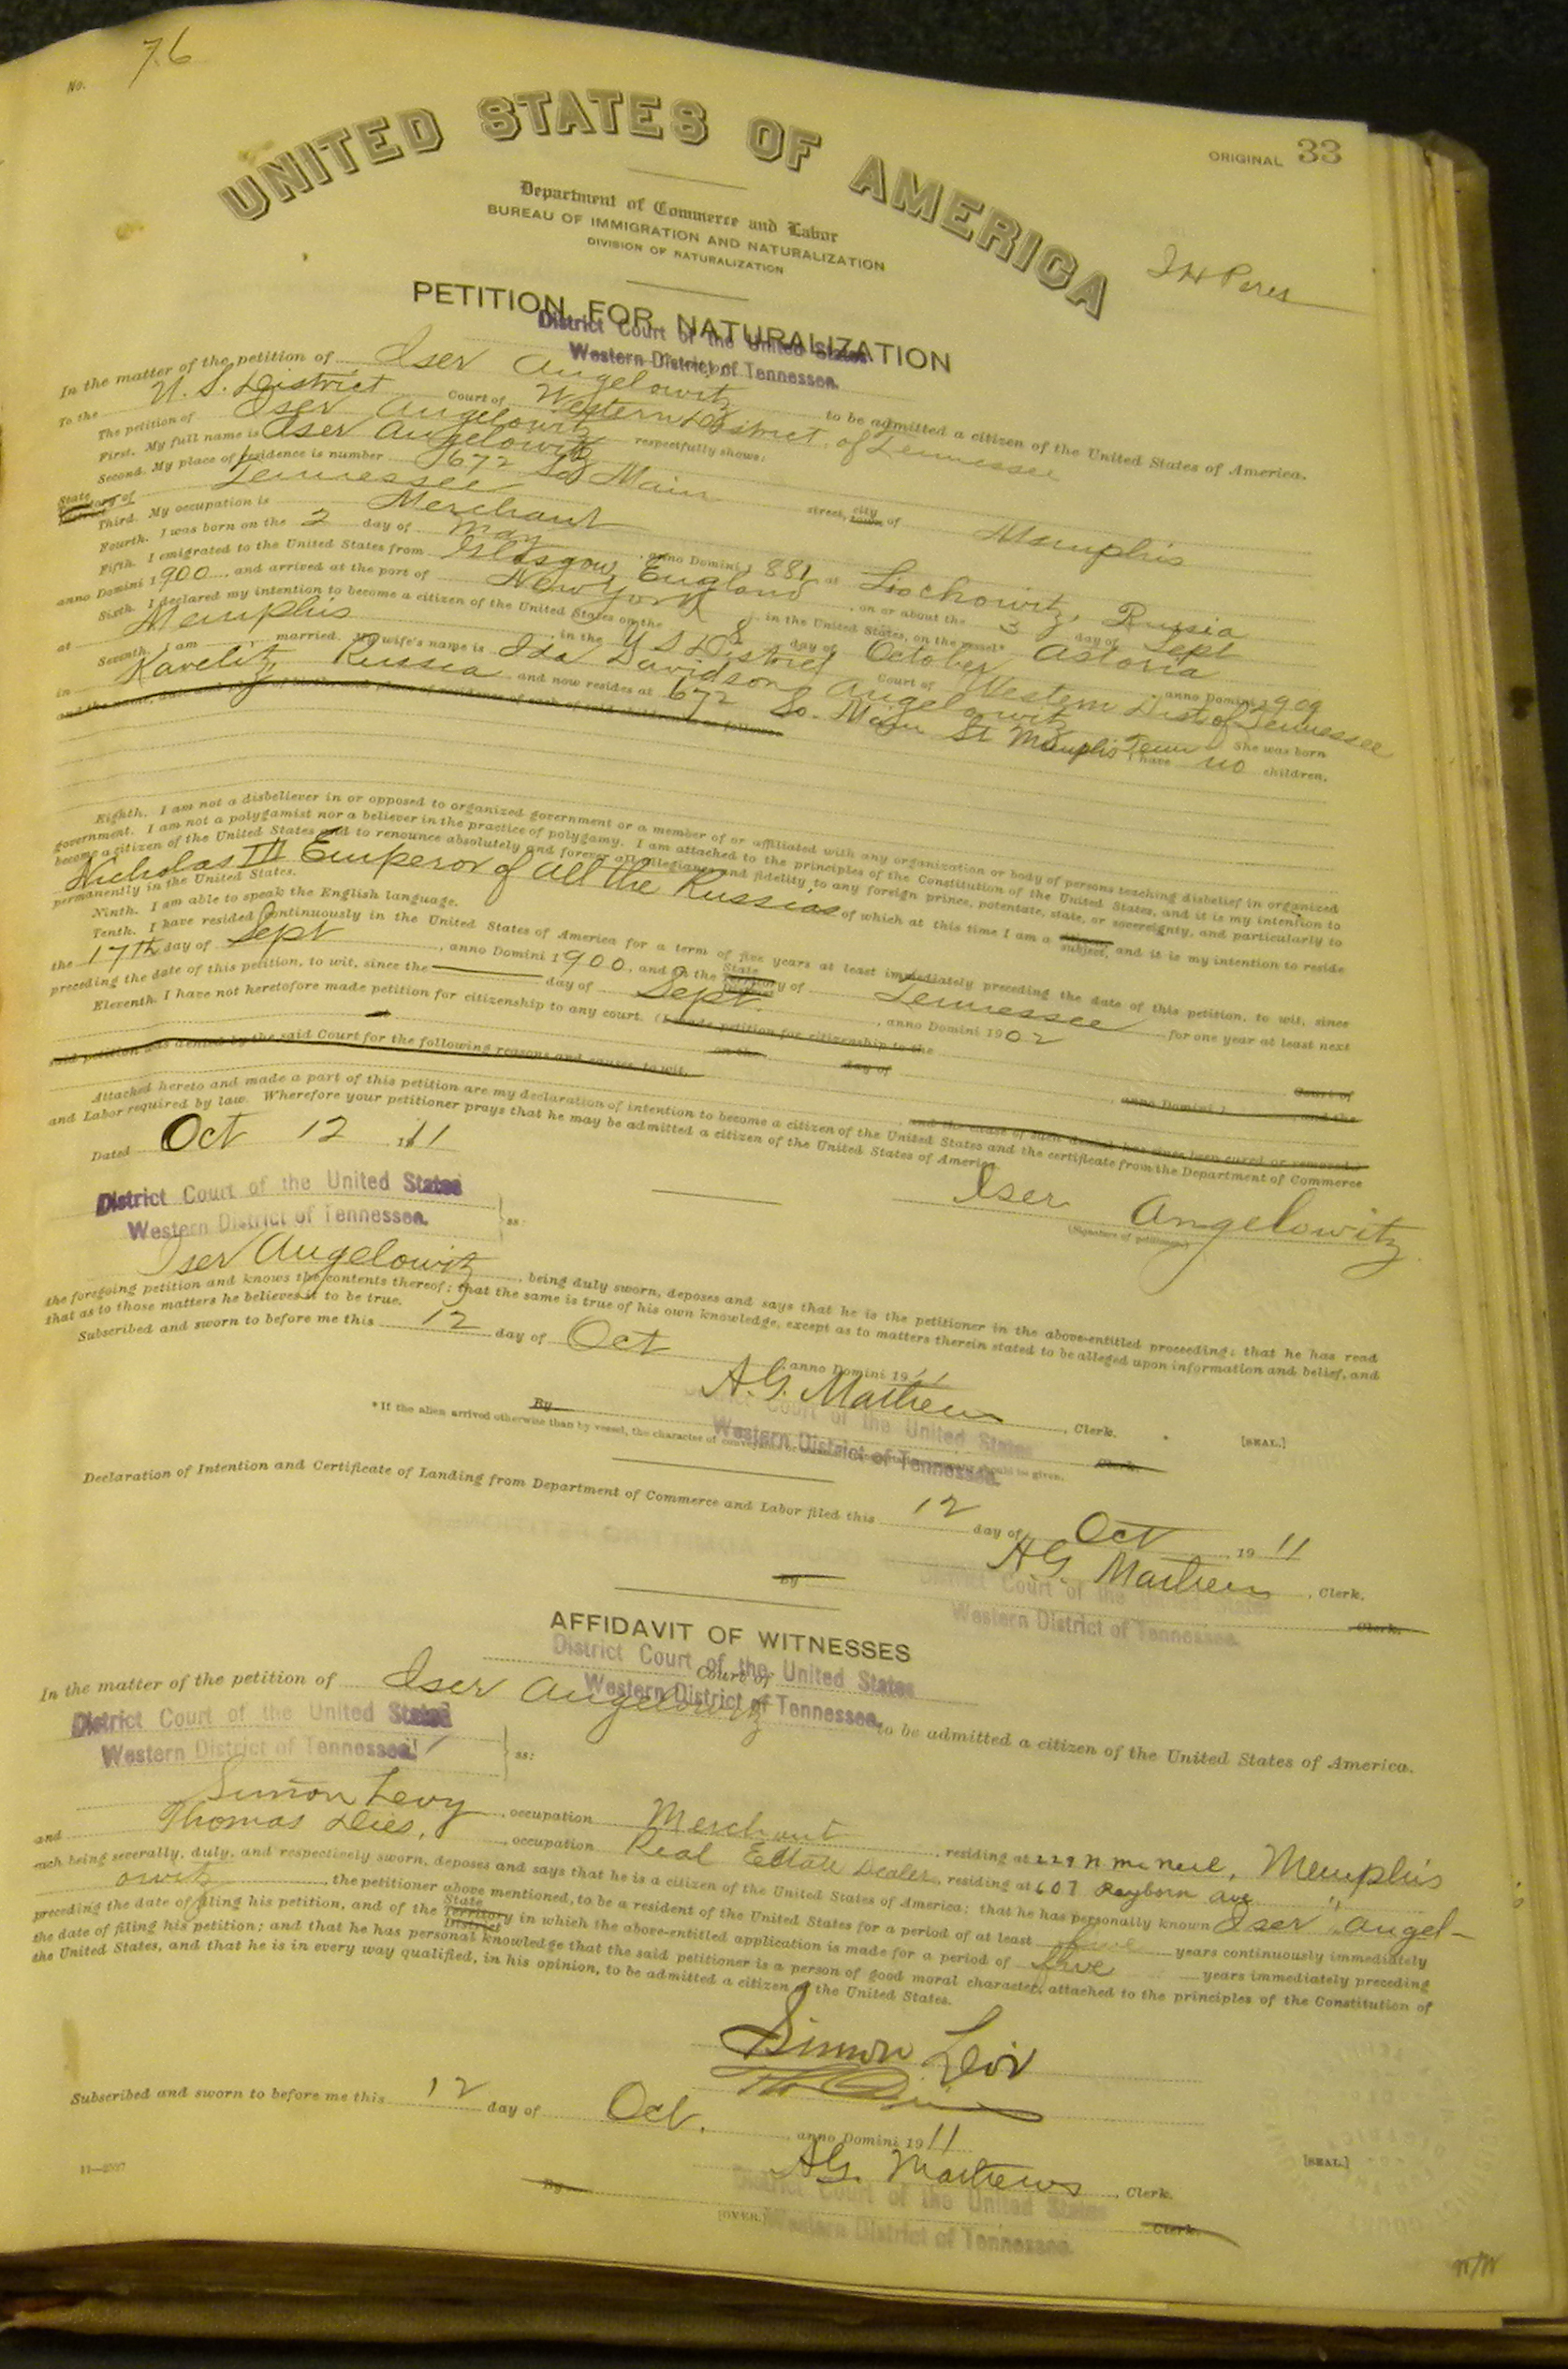 No. 76
ORIGINAL 33
UNITED STATES OF AMERICA
Department of Commerce and Labor
BUREAU OF IMMIGRATION AND NATURALIZATION
DIVISION OF NATURALIZATION
PETITION FOR NATURALIZATION
District Court of the United States
Western District of Tennessee.
In the matter of the petition of Iser Angelowitz to be admitted a citizen of the United States of America.
To the U. S. District Court of Western District of Tennessee
The petition of Iser Angelowitz respectfully shows:
First. My full name is Iser Angelowitz
Second. My place of residence is number 672 So Main street, city town of Memphis
State Territory District of Tennessee
Third. My occupation is Merchant
Fourth. I was born on the 2 day of May, anno Domini 1881 at Liochowitz, Russia
Fifth. I emigrated to the United States from Glasgow, England, on or about the 3 day of Sept
anno Domini 1900, and arrived at the port of New York, in the United States, on the vessel* Astoria
Sixth. I declared my intention to become a citizen of the United States on the 8 day of October, anno Domini 1909
at Memphis, in the U S District Court of Western Dist of Tennessee
Seventh. I am married. My wife's name is Ida Davidson Angelowitz She was born
in Kavelitz Russia and now resides at 672 So. Main St Memphis Tenn I have no children,
and the name, date and place of birth, and place of residence of each of said children is as follows:
Eighth. I am not a disbeliever in or opposed to organized government or a member of or affiliated with any organization or body of persons teaching disbelief in organized
government. I am not a polygamist nor a believer in the practice of polygamy. I am attached to the principles of the Constitution of the United States, and it is my intention to
become a citizen of the United States and to renounce absolutely and forever all allegiance and fidelity to any foreign prince, potentate, state, or sovereignty, and particularly to
Nicholas II Emperor of all the Russias of which at this time I am a citizen subject, and it is my intention to reside
permanently in the United States.
Ninth. I am able to speak the English language.
Tenth. I have resided continuously in the United States of America for a term of five years at least immediately preceding the date of this petition, to wit, since
the 17th day of Sept, anno Domini 1900, and in the State Territory District of Tennessee for one year at least next
preceding the date of this petition, to wit, since the day of Sept., anno Domini 1902
Eleventh. I have not heretofore made petition for citizenship to any court. (I made petition for citizenship to the Court of
on the day of, anno Domini 1, and the
said petition was denied by the said Court for the following reasons and causes, to wit,
, and the cause of such denial has since been cured or removed.)
Attached hereto and made a part of this petition are my declaration of intention to become a citizen of the United States and the certificate from the Department of Commerce
and Labor required by law. Wherefore your petitioner prays that he may be admitted a citizen of the United States of America.
Dated Oct 12 1911
Iser Angelowitz
(Signature of petitioner)
District Court of the United States
Western District of Tennessee. ss:
Iser Angelowitz, being duly sworn, deposes and says that he is the petitioner in the above-entitled proceeding; that he has read
the foregoing petition and knows the contents thereof; that the same is true of his own knowledge, except as to matters therein stated to be alleged upon information and belief, and
that as to those matters he believes it to be true.
Subscribed and sworn to before me this 12 day of Oct, anno Domini 1911
A.G. Mathews, Clerk. [SEAL.]
District Court of the United States
Western District of Tennessee.
By Clerk.
*If the alien arrived otherwise than by vessel, the character of conveyance or name of transportation company should be given.
Declaration of Intention and Certificate of Landing from Department of Commerce and Labor filed this 12 day of Oct 1911
A.G. Mathews, Clerk.
District Court of the United States
Western District of Tennessee.
By Clerk.
AFFIDAVIT OF WITNESSES
District Court of the United States
Court of
Western District of Tennessee.
In the matter of the petition of Iser Angelowitz to be admitted a citizen of the United States of America.
District Court of the United States
Western District of Tennessee. ss:
Simon Levy, occupation Merchant, residing at 229 N McNeil, Memphis
and Thomas Dies, occupation Real Estate Dealer, residing at 607 Rayborn ave " "
each being severally, duly, and respectively sworn, deposes and says that he is a citizen of the United States of America; that he has personally known Iser Angel-
owitz, the petitioner above mentioned, to be a resident of the United States for a period of at least five years continuously immediately
preceding the date of filing his petition, and of the State Territory District in which the above-entitled application is made for a period of five years immediately preceding
the date of filing his petition; and that he has personal knowledge that the said petitioner is a person of good moral character, attached to the principles of the Constitution of
the United States, and that he is in every way qualified, in his opinion, to be admitted a citizen of the United States.
Simon
Subscribed and sworn to before me this 12 day of Oct., anno Domini 1911
A.G. Mathews, Clerk. [SEAL.]
District Court of the United States
Western District of Tennessee.
By Clerk.
[OVER.]